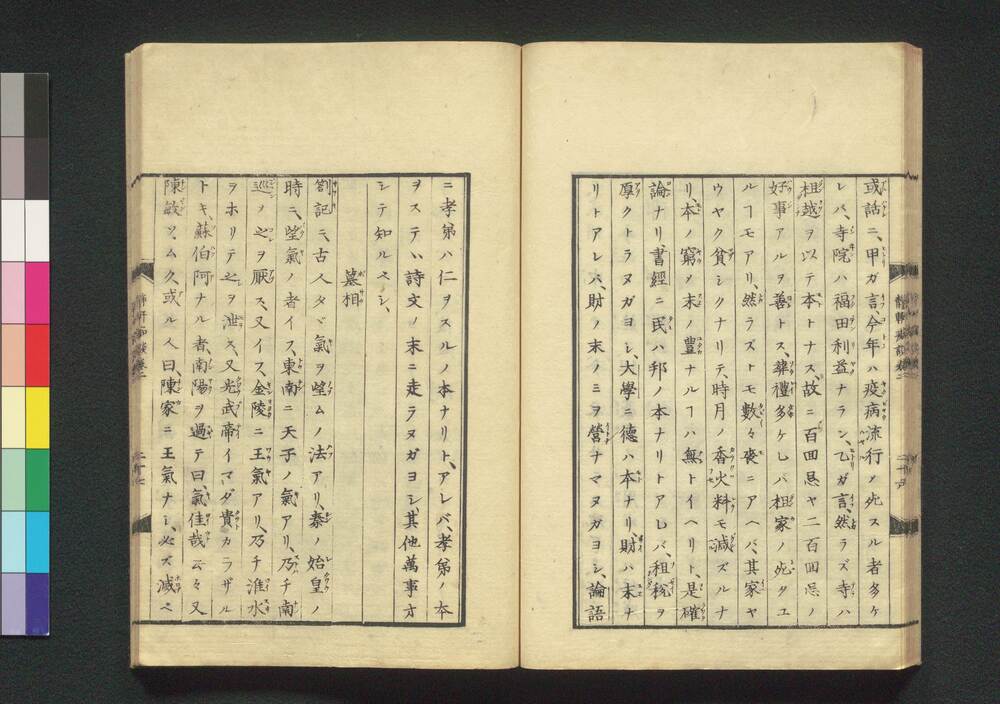 或話ニ、甲ガ言、今年ハ疫病流行ノ死スル者多ケ
レバ、寺院ハ福田利益ナラン、乙ガ言、然ラズ寺ハ
祖越ヲ以テ本トナス、故ニ百回忌ヤ二百回忌ノ
好事アルヲ善トス、葬禮多ケレバ祖家ノ死タユ
ルヿモアリ、然ラズトモ數々喪ニアヘバ、其家ヤ
ウヤク貧シクナリテ、時月ノ香火料モ減ズルナ
リ、本ノ窮メ末ノ豊ナルヿハ無トイヘリト、是確
論ナリ、書經ニ民ハ邦ノ本ナリトアレバ、租税ヲ
厚クトラヌガヨシ、大學ニ德ハ本ナリ、財ハ末ナ
リトアレバ、財ノ末ノミヲ營ナマヌガヨシ、論語
ニ孝弟ハ仁ヲスルノ本ナリト、アレバ、孝弟ノ本
ヲステヽ詩文ノ末ニ走ラヌガヨシ、其他萬事方
シテ知ルベシ、
墓相
劄記ニ、古人タヾ氣ヲ望ムノ法アリ、秦ノ始皇ノ
時ニ、望氣ノ者イフ、東南ニ天子ノ氣アリ、乃チ南
巡ノ之ヲ厭ス、又イフ、金陵ニ王氣アリ、乃チ淮水
ヲホリテ之ヲ洩ス、又光武帝イマダ貴カラザル
トキ、蘇伯阿ナル者、南陽ヲ過テ曰、氣佳哉云々又
陳敏ソム久或ル人曰、陳家ニ王氣ナシ、必ズ滅ベ